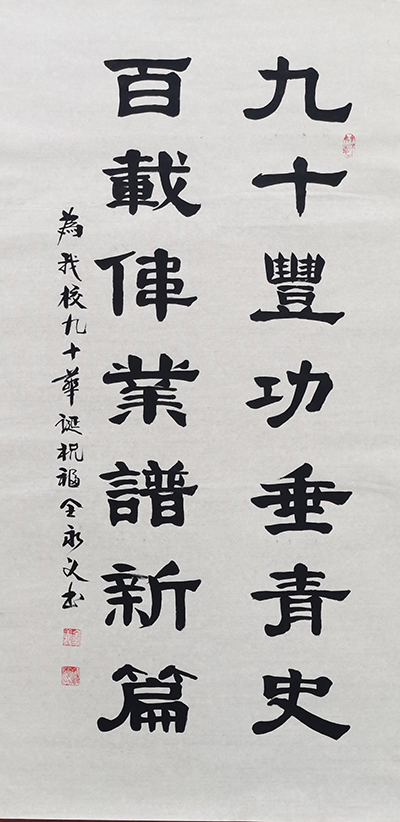 九十豐功垂青史
百載偉業譜新篇
為我校九十華誕祝福全永文书